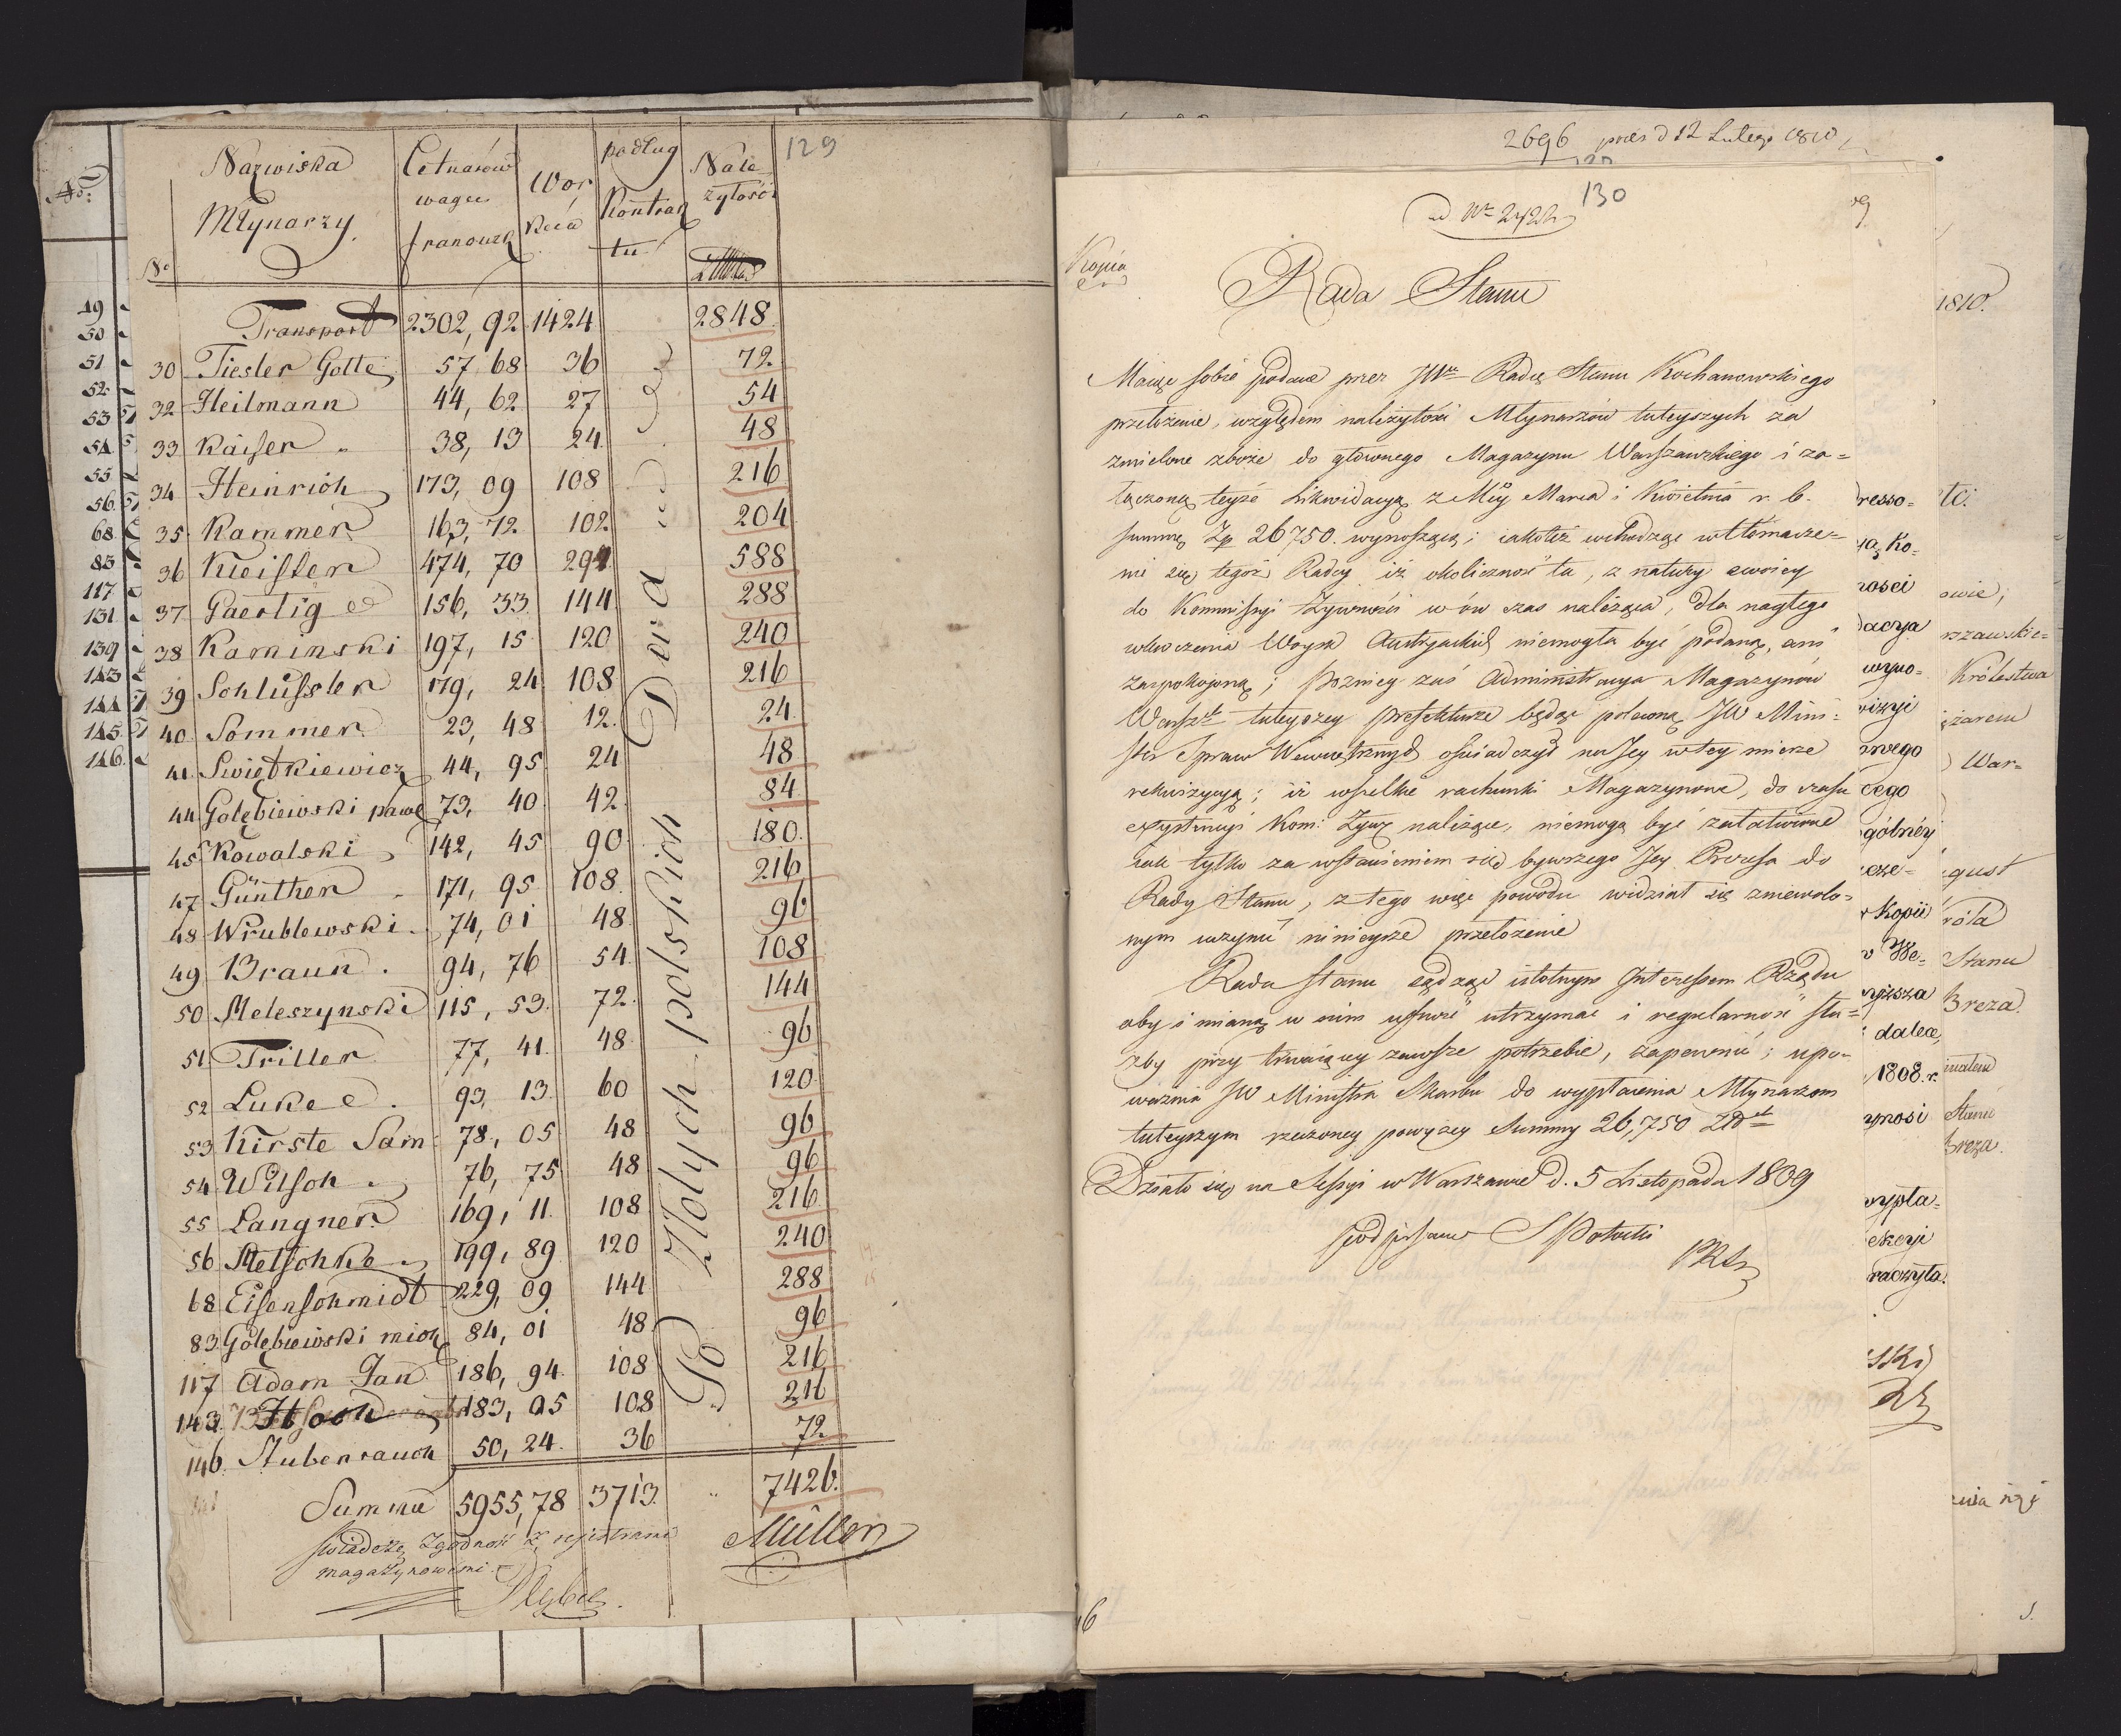 129
No:
Nazwiska Młynarzy
Cetnarów wagi francuzk
Wor Ków
podług Kontrak tu
Nale żytość
No
Transport 2302, 92 1424 2848
30 Tiesler Gotte 57, 68 36 72
32 Heilmann 44, 62 27 54
33 Kaiser 38, 13 24 48
34 Heinrich 173, 09 108 216
35 Kammer 163, 72 102 204
36 Kleister 474, 70 294 588
37 Gaertig 156, 33 144 288
38 Kaminski 197, 15 120 240
39 Schlüssler 179, 24 108 216
40 Sommer 23, 48 12 24
41 Swiętkiewicz 44, 95 24 48
44 Gołębiewski pawe 73, 40 42 84
45 Kowalski 142, 45 90 180
47 Günther 171, 95 108 216
48 Wrublewski 74, 01 48 96
49 Braun 94, 76 54 108
50 Meleszynski 115, 53 72 144
51 Triller 77, 41 48 96
52 Luke 93, 13 60 120
53 Kirste Sam 78, 05 48 96
54 Wilsch 76, 75 48 96
55 Langner 169, 11 108 216
56 Stetschke 199, 89 120 240
68 Eisenschmidt 229, 09 144 288
83 Gołębiewski mich 84, 01 48 96
117 Adam Jan 186, 94 108 216
143 183, 05 108 216
146 Stubenrauch 50, 24 36 72
Po Złotych polskich Dwa
Summa 5955, 78 3713 7426
swiadczę zgodność z rejestrami
magazynowemi
Müller
49
50
51
52
53
54
55
56
68
83
117
131
139
143
144
145
146
2696 præs d 12 Lutego 1810
130
ad Nr 2422
Kopia
Rada Stanu
Maiąc sobie podane przez JWo Radcę Stanu Kochanowskiego
przełożenie, względem należytości Młynarzów tuteyszych za
zmielone zboże do głównego Magazynu Warszawskiego i za=
łączoną teyże Likwidacyą z Mcy Marca i Kwietnia r. b.
summę Zp 26750. wynoszącą; iakoteż wchodząc w tłomacze=
nie się tegoż Radcy iż okoliczność ta, z natury swoiey
do Kommissyi Żywności w ów czas należąca, dla nagłego
wkroczenia Woysk Austryackich niemogła być podaną, ani
zaspokojoną; pozniey zaś Administracya Magazynów
Warsz tuteyszey Prefekturze będąc poleconą JW Mini=
ster Spraw Wewnętrznych oświadczył na Jey w tey mierze
rekwizycyą; iż wszelkie rachunki Magazynowe, do czasu
exystencyi Kom: Żyw należące, niemogą być załatwione
iak tylko za wstawieniem się bywszego Jey Prezesa do
Rady Stanu, z tego więc powodu widział się zniewolo=
nym uczynić ninieysze przełożenie
Rada Stanu sądząc istotnym Interessem Rządu
aby i mianą w nim ufność utrzymać i regularność słu=
żby przy trwaiącey zawsze potrzebie, zapewnić; upo=
ważnia JW Ministra Skarbu do wypłacenia Młynarzom
tuteyszym rzeczoney powyżey Summy 26,750 Złt
Działo się na Sessyi w Warszawie d. 5 Listopada 1809
podpisano S Potocki
PRS
resso=
ya, Ko=
ności
dacya
wyno=
wizyi
cego
gólnéy
cze=
Kopii
w We=
wyższa
dalece,
1808. r.
ynosi
wypła=
ekcyi
raczyła.
1810.
tci.
owie,
rszawskie=
Królestwa
iężarem
War=
gust
róla
Stanu
Breza.
Stanu
Breza.
6